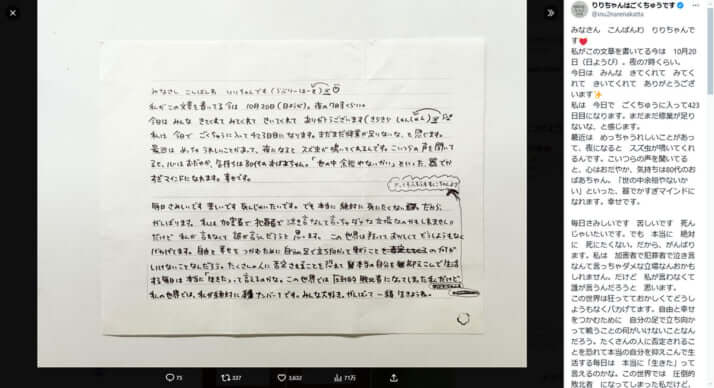 みなさん こんばんわ りりちゃんです
私がこの文章を書いてる今は 10月20日(日ようび)。夜の7時くらい。
今日は みんな きてくれて みてくれて きいてくれて ありがとうございます
私は 今日で ごくちゅうに入って423日目になります。まだまだ修業が足りないな、と感じます。
最近は めっちゃうれしいことがあって、夜になると スズ虫が鳴いてくれるんです。こいつらの声を聞いて
ると、心はおだやか、気持ちは80代のおばあちゃん。「世の中余裕やないかい」といった、器でか
すぎマインドになれます。幸せです。
毎日さみしいです 苦しいです 死んじゃいたいです。でも 本当に 絶対に 死にたくない。だから、
がんばります。私は 加害者で 犯罪者で 泣き言なんて言っちゃダメな立場なんかもしれません。
だけど 私が言わなくて 誰が言うんだろうと 思います。この世界は狂ってておかしくてどうしようもなく
バカげてます。自由と幸せをつかむために 自分の足で立ち向かって戦うことの何が
いけないことなんだろう。たくさんの人に否定されることを恐れて 本当の自分を抑えこんで生活
する毎日は 本当に「生きた」って言えるのかな。この世界では 圧倒的 敗北者になってしまった私だけど、
私の世界では、私が絶対にナンバー1です。みんな大好き。がんばって一緒に生きようね。
75
337
3,602
71万
りりちゃんはごくちゅうです
@inu2narenakatta
みなさん こんばんわ りりちゃんで
す❤️
私がこの文章を書いてる今は 10月20
日(日ようび)。夜の7時くらい。
今日は みんな きてくれて みてく
れて きいてくれて ありがとうござ
います✨
私は 今日で ごくちゅうに入って423
日目になります。まだまだ修業が足り
ないな、と感じます。
最近は めっちゃうれしいことがあっ
て、夜になると スズ虫が鳴いてくれ
るんです。こいつらの声を聞いてる
と、心はおだやか、気持ちは80代のお
ばあちゃん。「世の中余裕やないか
い」といった、器でかすぎマインドに
なれます。幸せです。
毎日さみしいです 苦しいです 死ん
じゃいたいです。でも 本当に 絶対
に 死にたくない。だから、がんばり
ます。私は 加害者で犯罪者で泣き言
なんて言っちゃダメな立場なんかもし
れません。だけど 私が言わなくて
誰が言うんだろうと 思います。
この世界は狂ってておかしくてどうし
ようもなくバカげてます。自由と幸せ
をつかむために 自分の足で立ち向か
って戦うことの何がいけないことなん
だろう。たくさんの人に否定されるこ
とを恐れて本当の自分を抑えこんで生
活する毎日は 本当に「生きた」って
言えるのかな。この世界では 圧倒的
敗北者 になってしまった私だけど、